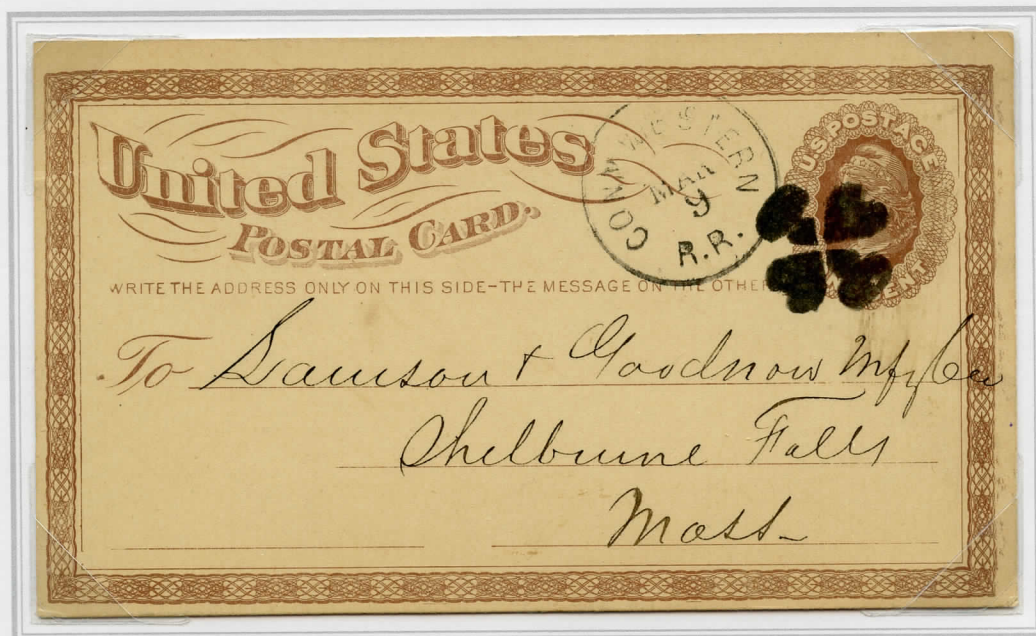 United States
POSTAL CARD.
CONN. WESTERN
MAR
9
R.R.
U.S. POSTAGE
CENT
WRITE THE ADDRESS ONLY ON THIS SIDE-THE MESSAGE ON THE OTHER
To Lamson & Goodnow Mfg Co
Shelburne Falls
Mass